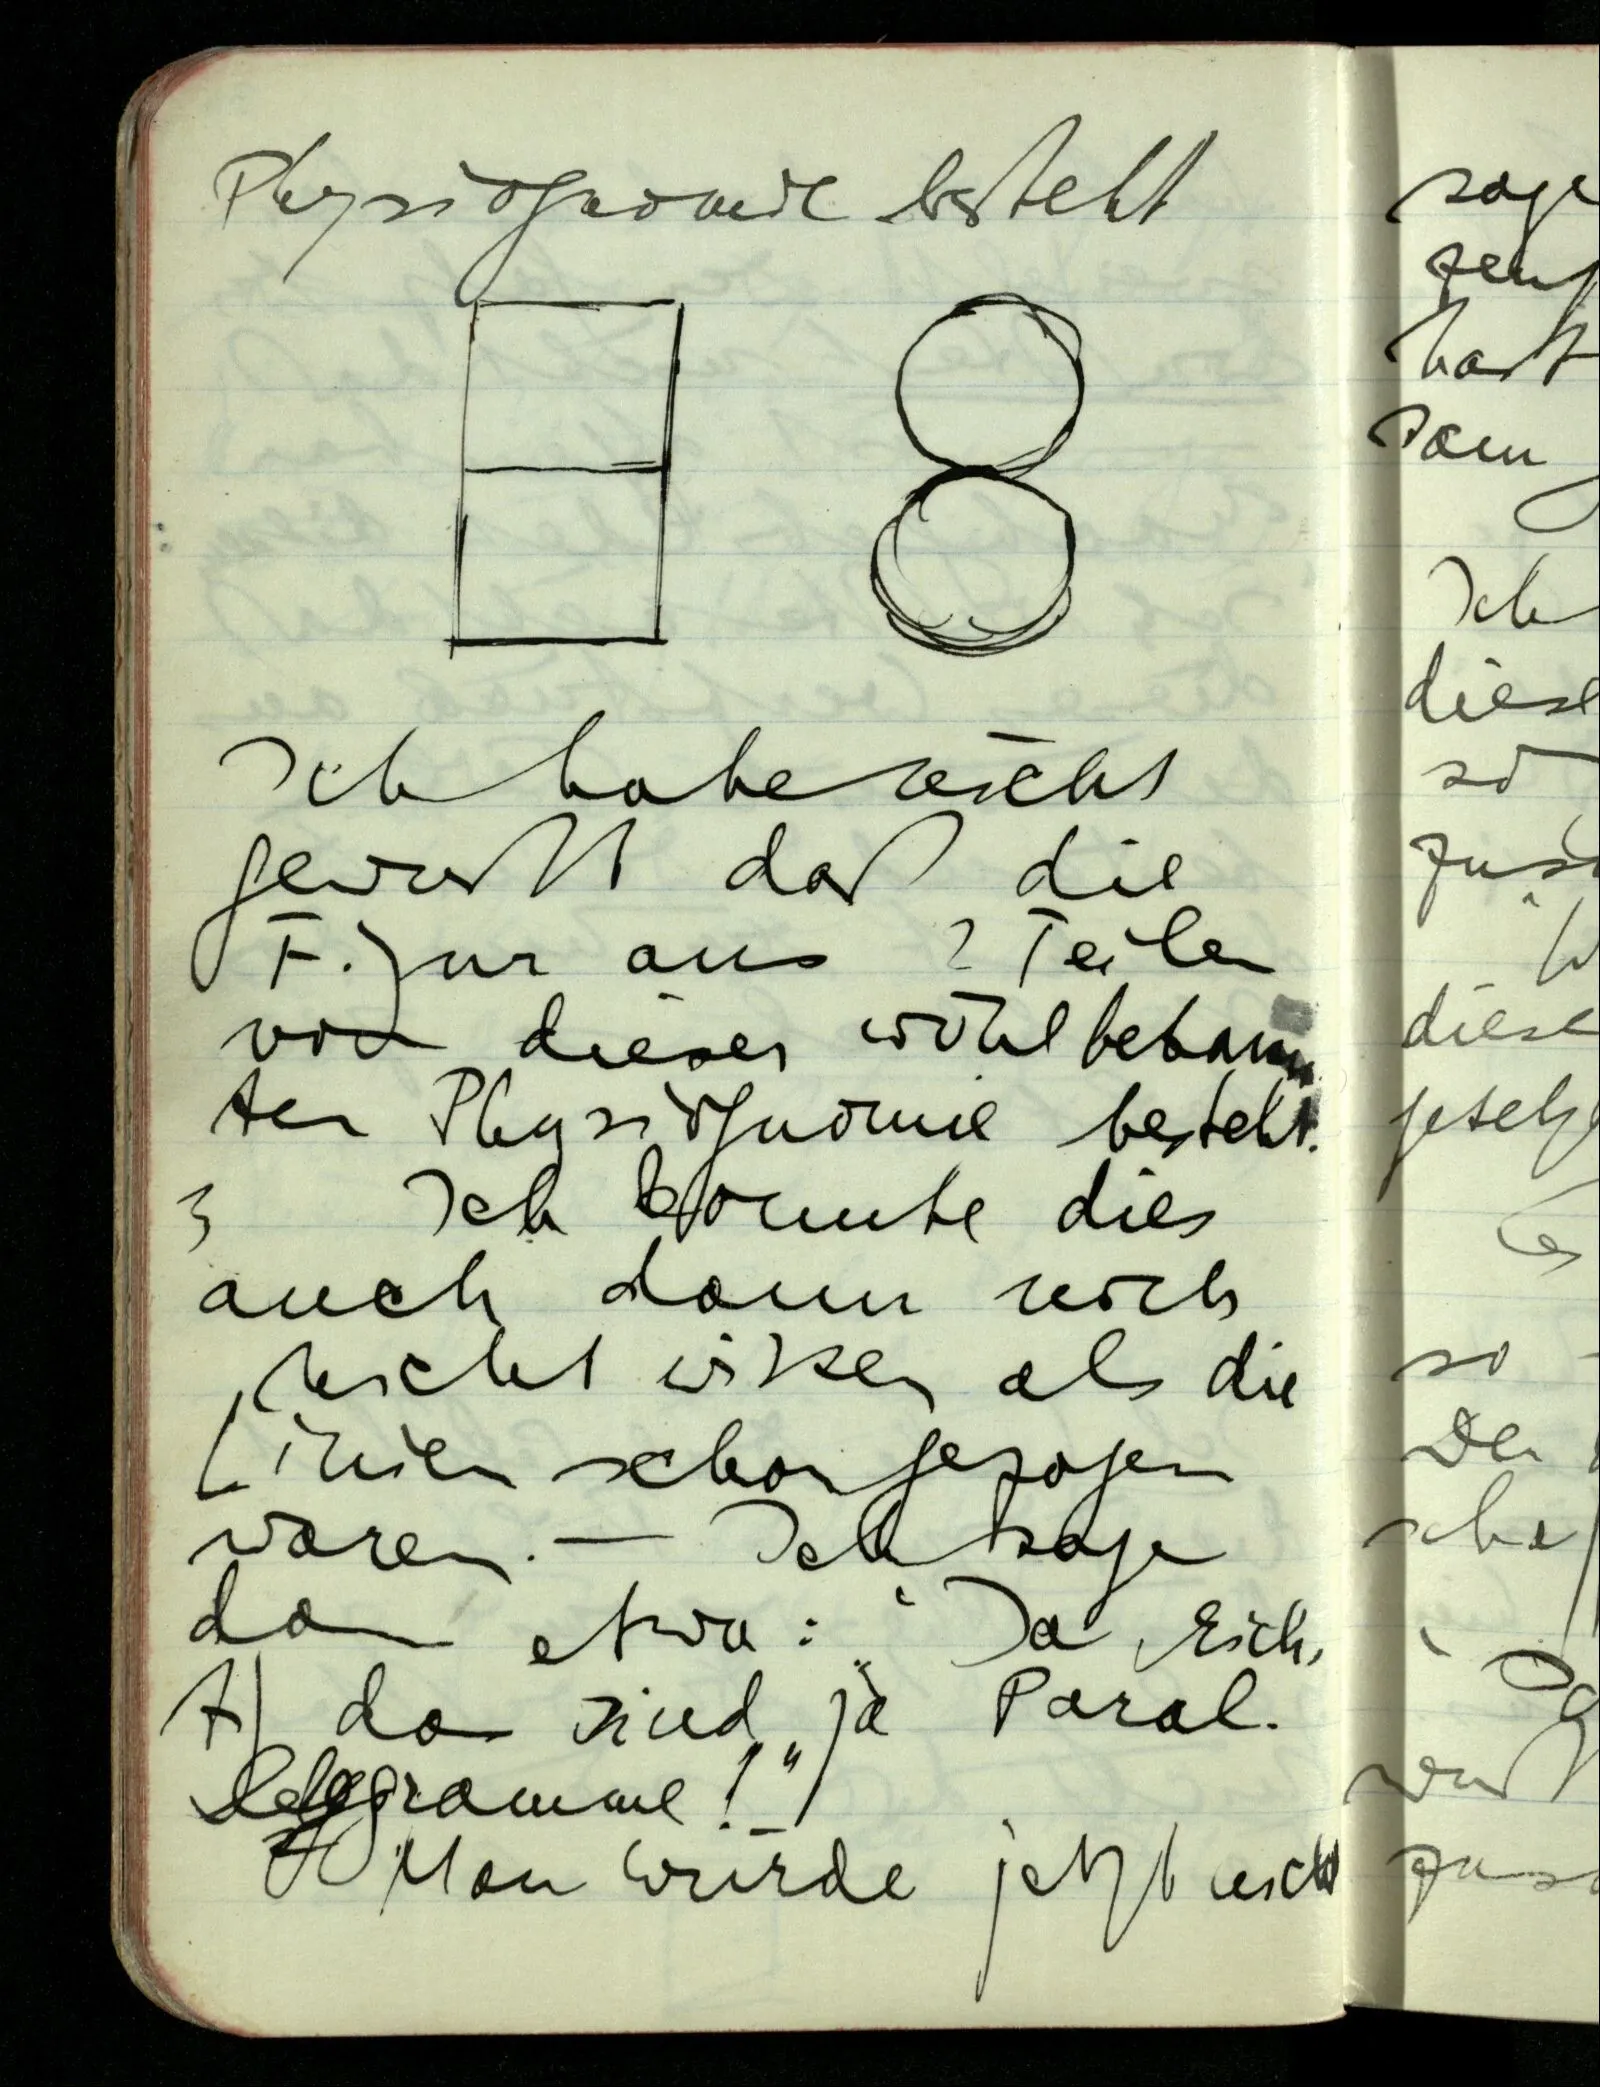 Physiognomie besteht
Ich habe nicht
gewußt daß die
Figur aus 2 Teilen
von dieser wohlbekann
ten Physiognomie besteht.
3 Ich konnte dies
auch dann noch
nicht wissen als die
Linien schon gezogen
waren. — Ich sage
dann etwa: "Ja
da sind ja Paral-
lelogramme!"
Man würde jetzt nicht
sage
hast
Ich
diese
so
diese
so